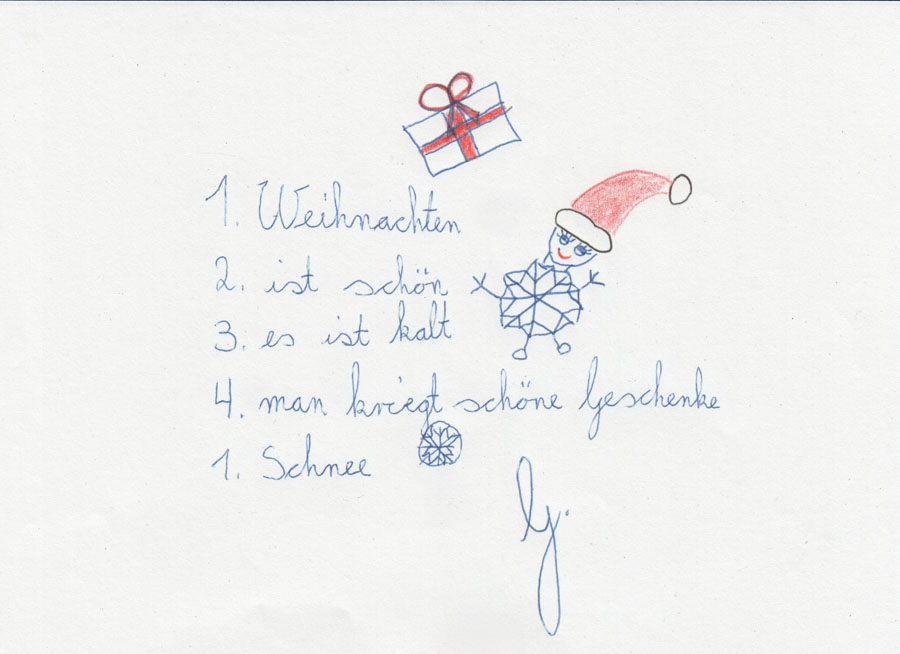 1. Weihnachten
2. ist schön
3. es ist kalt
4. man kriegt schöne Geschenke
1. Schnee
G.